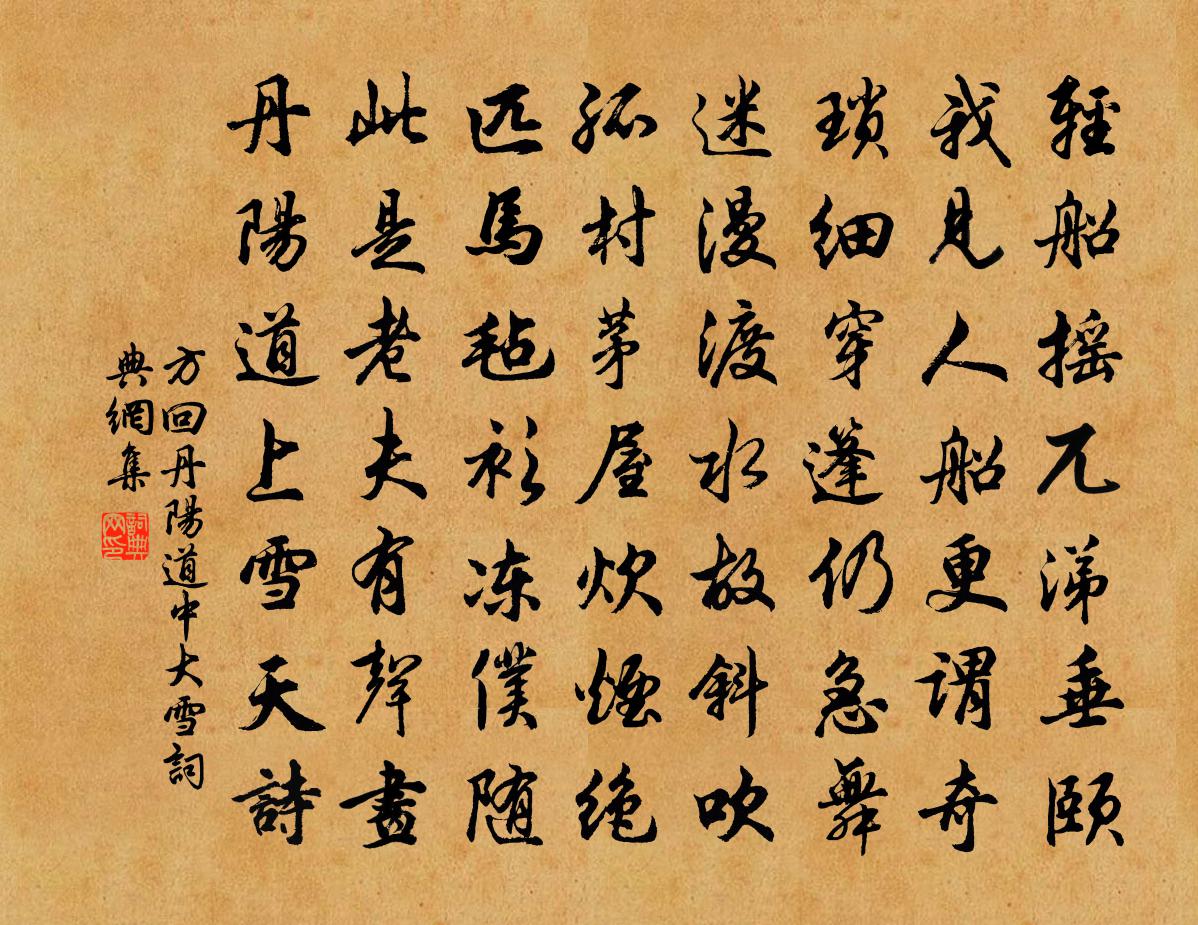 輕船摇兀涕垂頤
我見人船更謂奇
瑣細穿蓬仍急舞
迷漫渡水故斜吹
孤村茅屋炊煙绝
匹馬毡衫冻僕随
此是老夫有聲畫
丹陽道上雪天詩
方回丹陽道中大雪詞
典網集
詞典網印